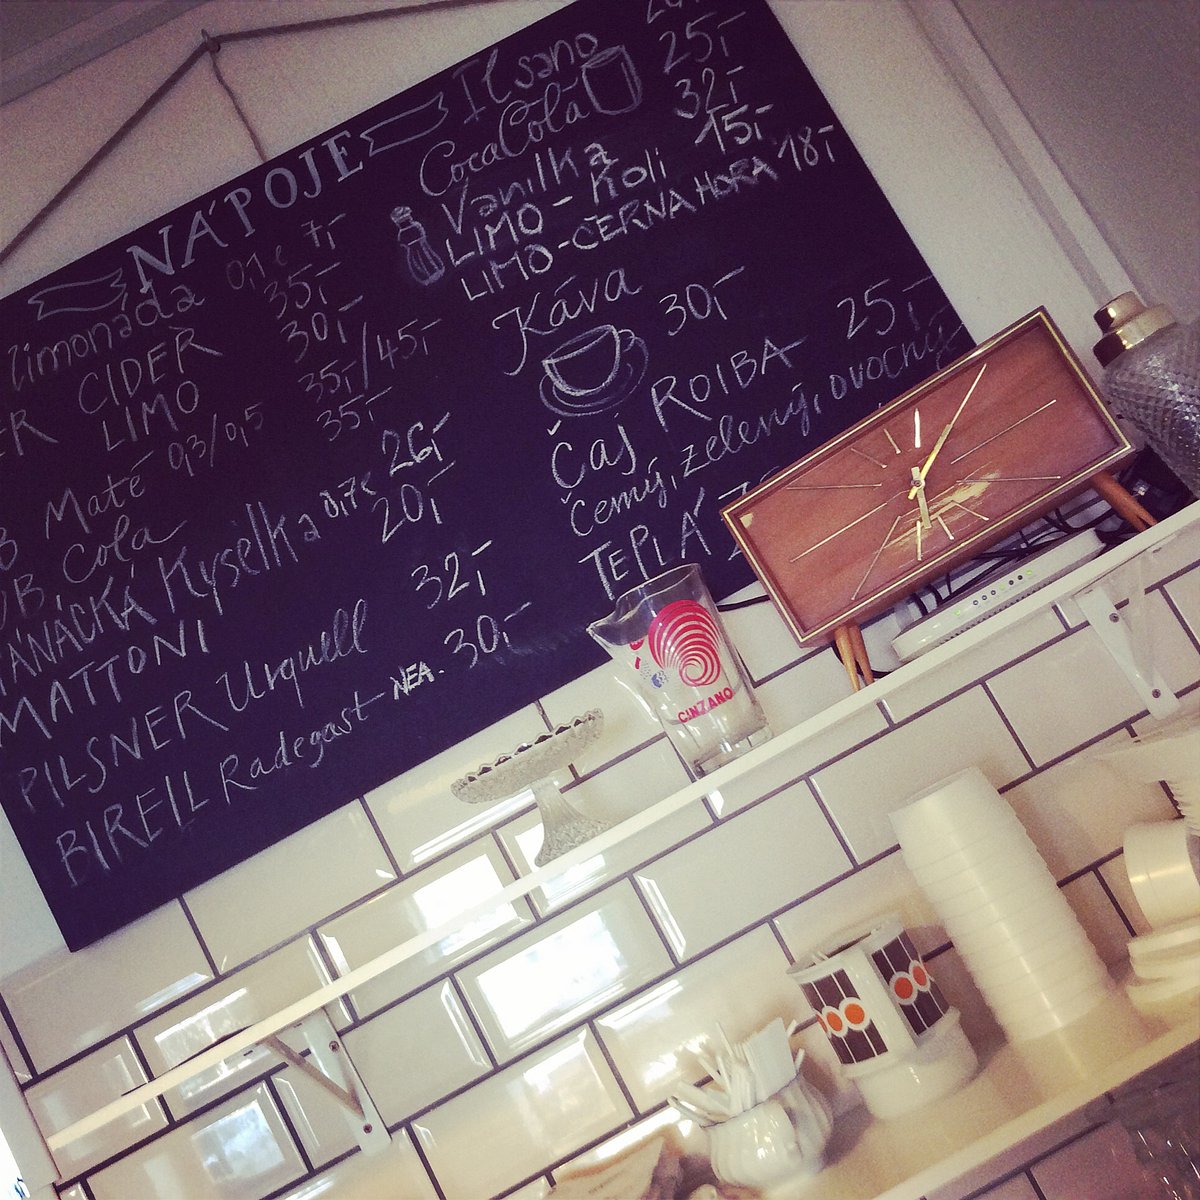 NÁPOJE
limonáda 0,1 e 7,-
CIDER 35,-
LIMO 30,-
Maté 0,3/0,5 35,-/45,-
Cola 35,-
Kyselka 0,7 26,-
MATTONI 20,-
PILSNER Urquell 32,-
BIRELL Radegast - NEA. 30,-
Il sano
CocaCola 25,-
Vanilka 32,-
LIMO - Koli 15,-
LIMO - ČERNÁ HORA 18,-
Káva 30,-
Čaj ROIBA 25,-
Černý, zelený, ovocný
TEPLÁ
CINZANO